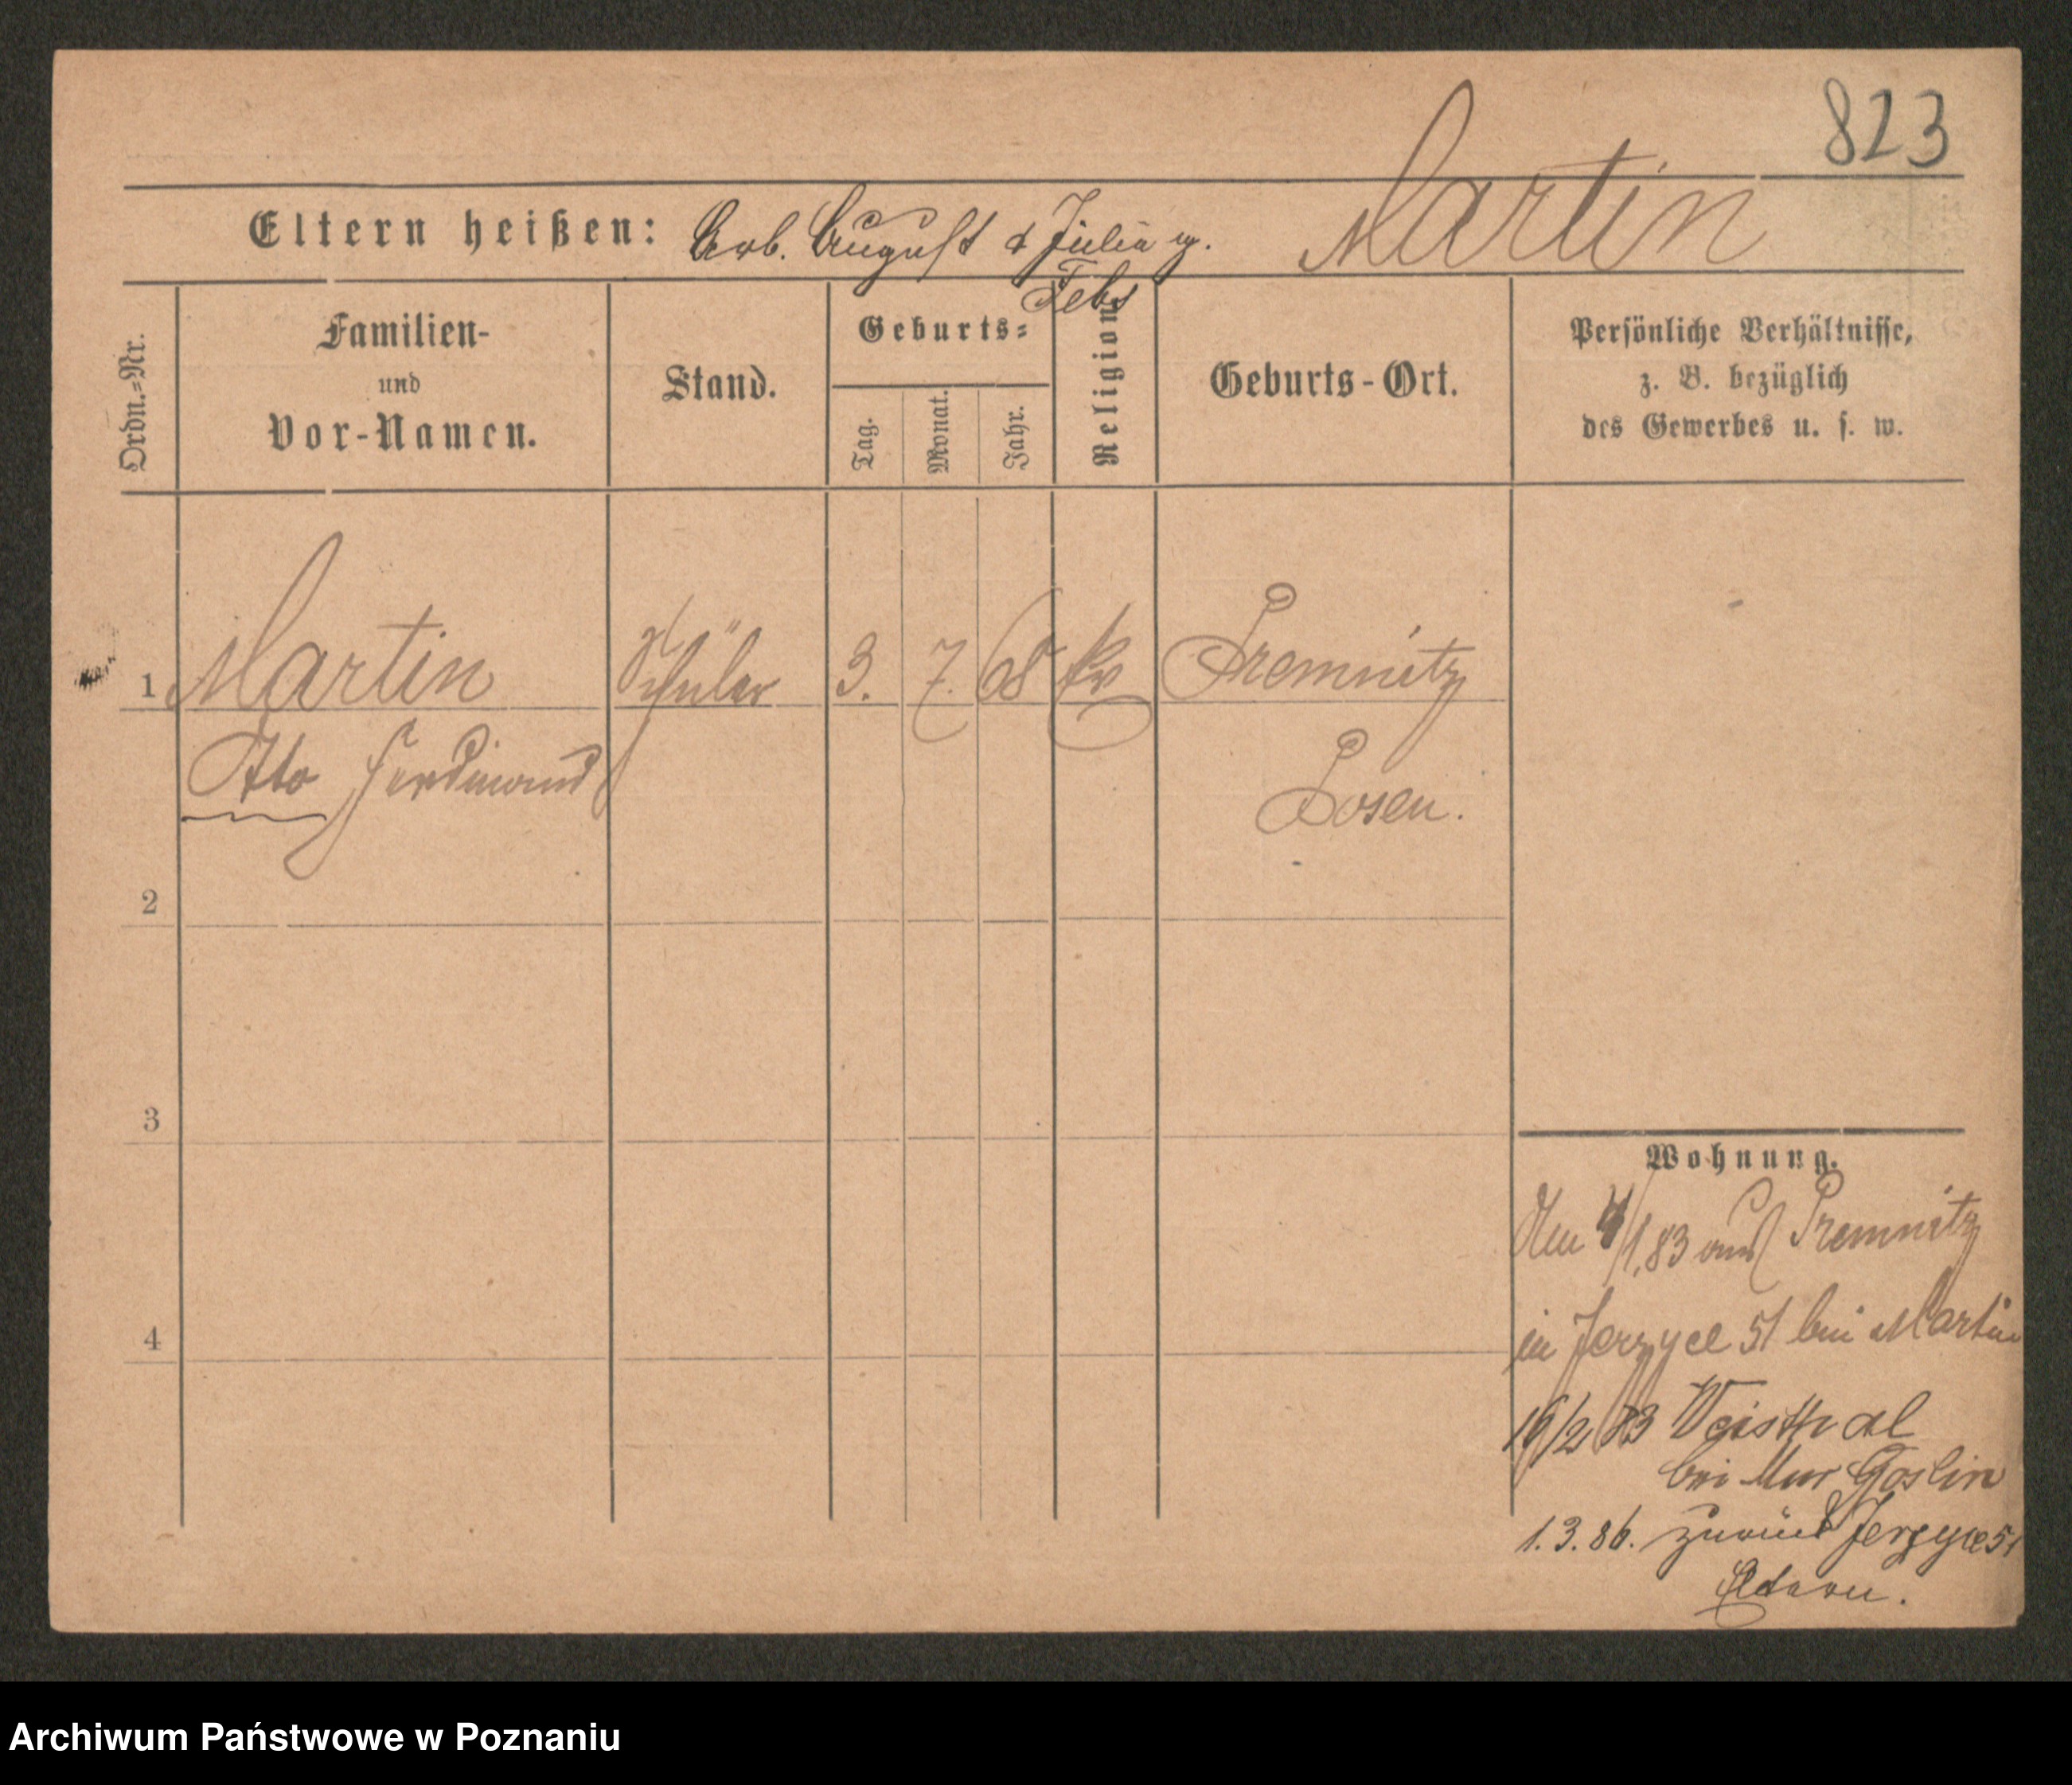 823
Martin
Eltern heißen: Arb. August & Julia g.
Febs
Ordn.-Nr.
Familien-
und
Vor-Namen.
Stand.
Geburts-
Tag.
Monat.
Jahr.
Religion.
Geburts-Ort.
Persönliche Verhältnisse,
z. B. bezüglich
des Gewerbes u. s. w.
1 Martin Schüler 3. 7. 68 Premnitz
Otto Ferdinand Posen.
2
3
4
Wohnung.
Am 4/1.83 aus Premnitz
in Jerzyce 51 bei Martin
16/2 83 Weisthal
bei Mur Goslin
1.3.86. zurück Jerzyce 51
Eltern.
Archiwum Państwowe w Poznaniu